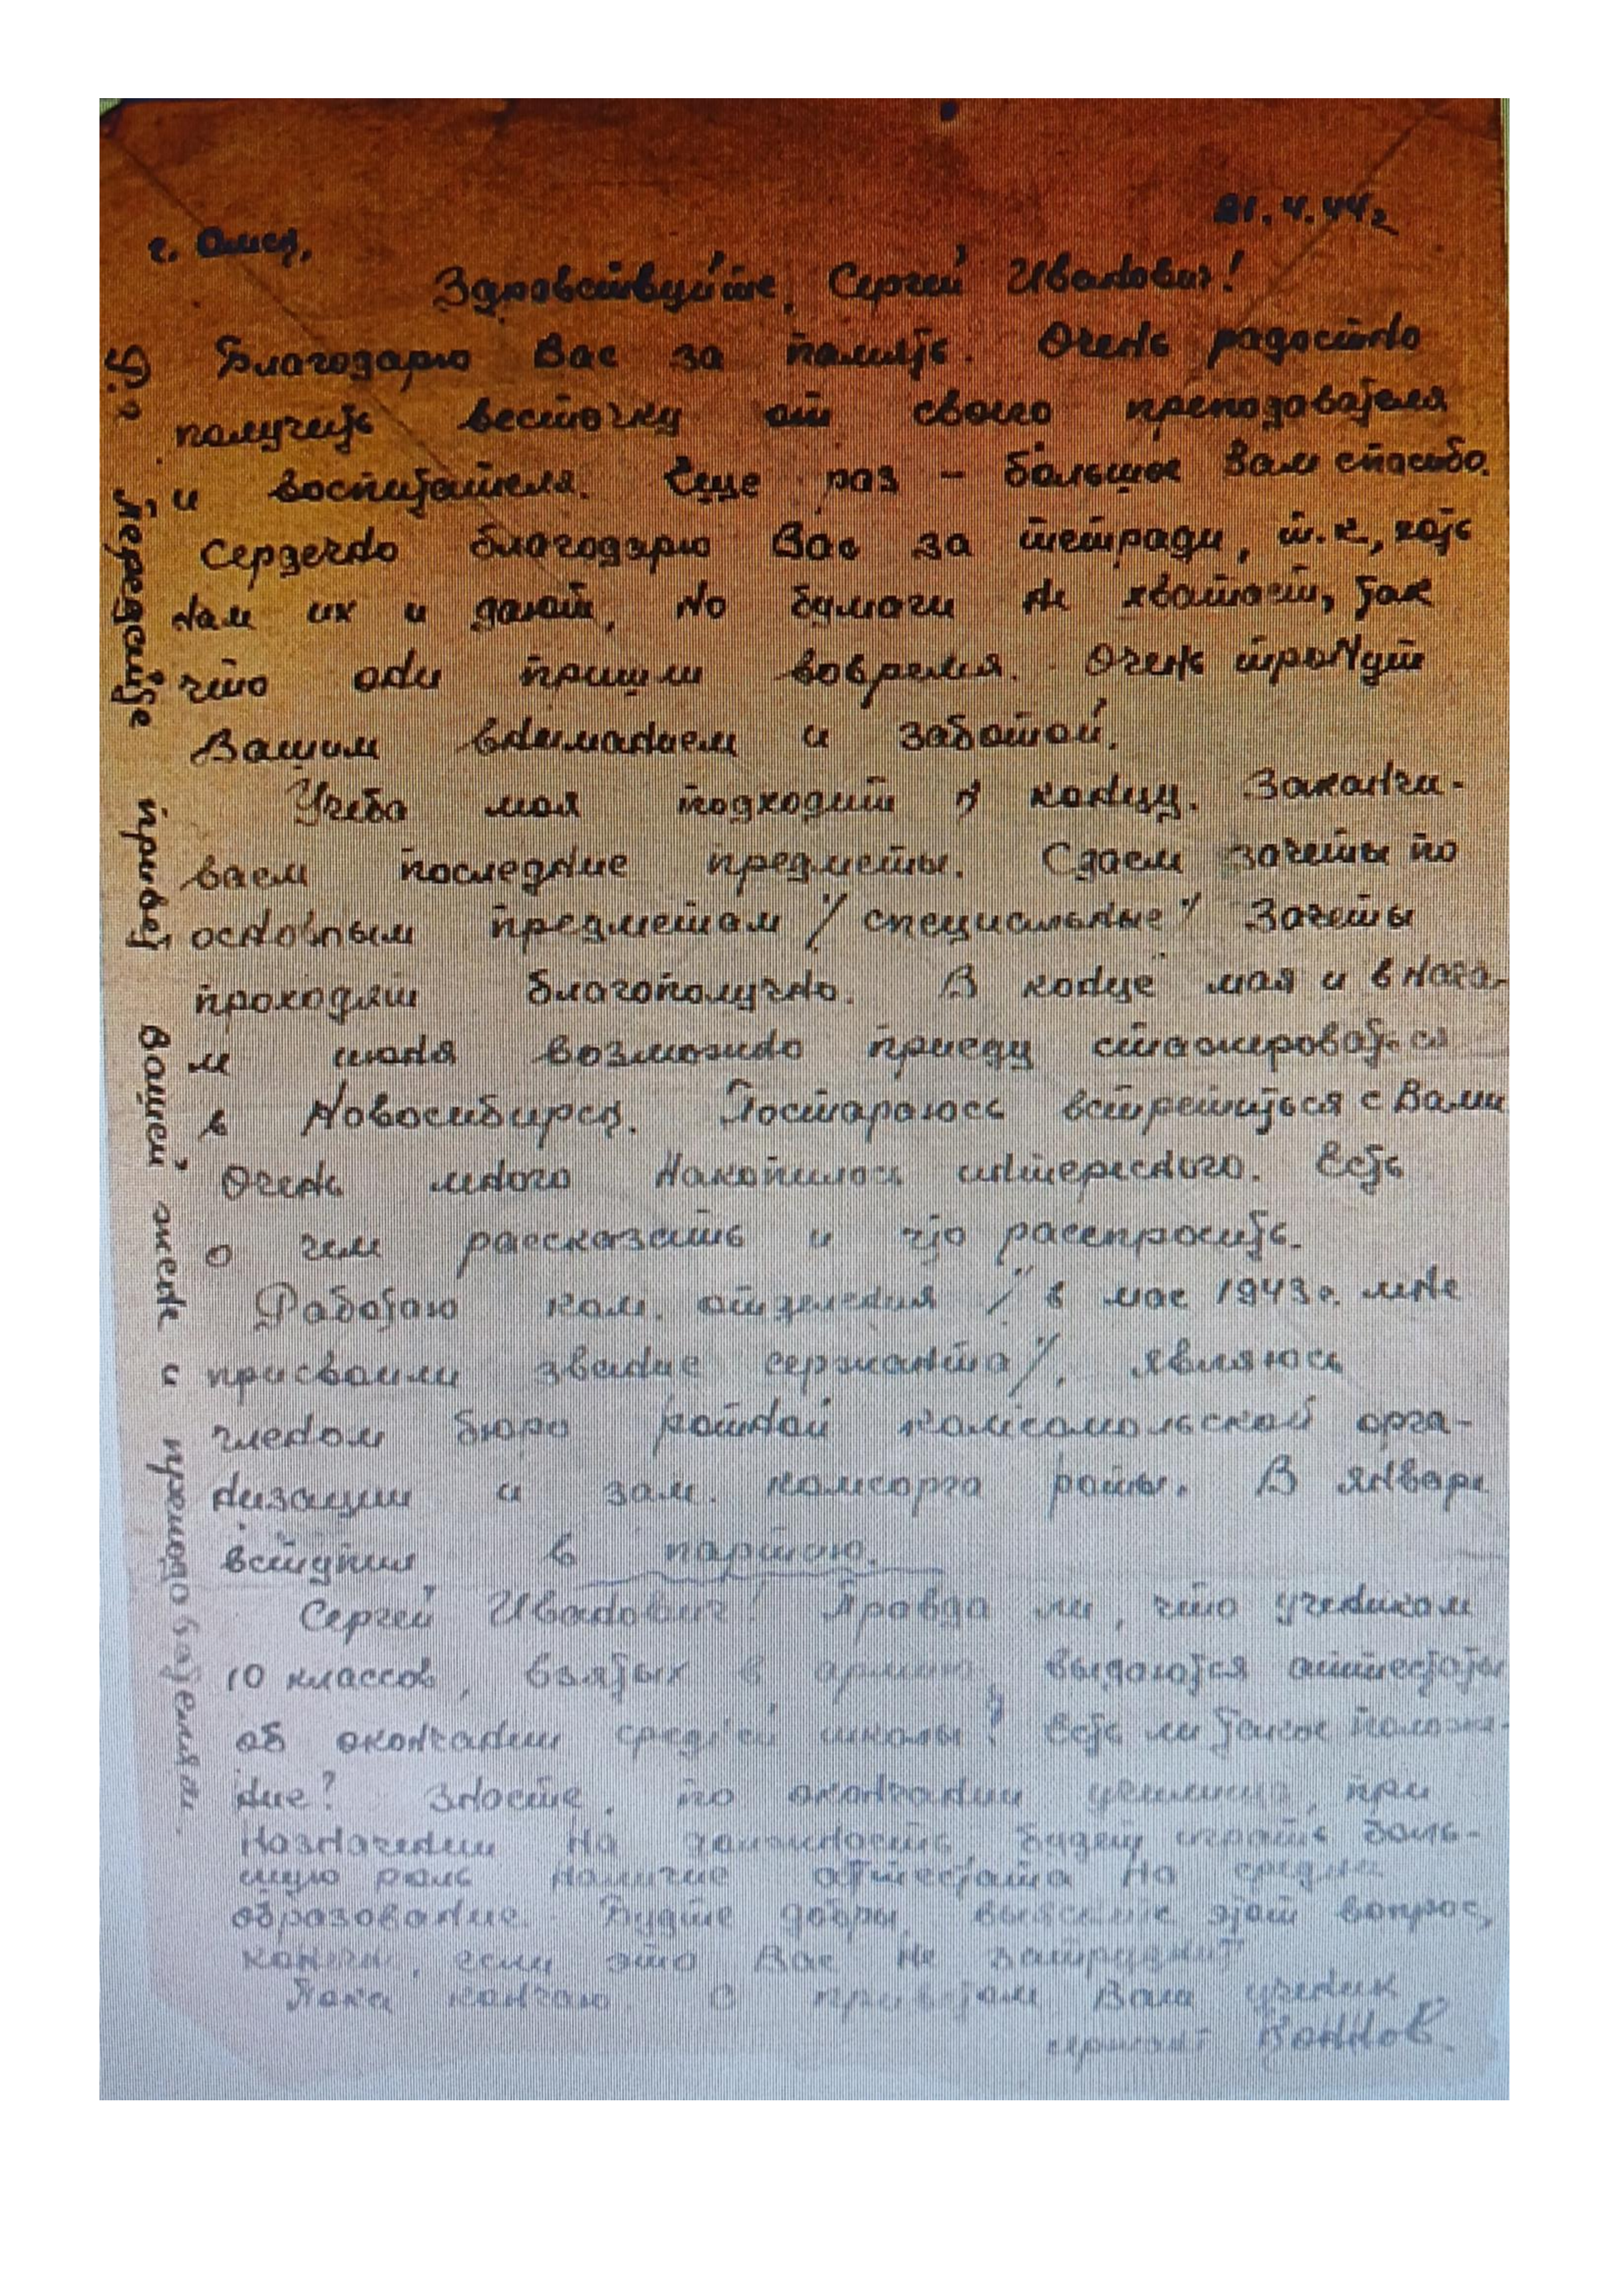 г. Омск,
21.4.44 г
Здравствуйте, Сергей Иванович!
Благодарю Вас за память. Очень радостно
получить весточку от своего преподавателя
и воспитателя. Еще раз - большое Вам спасибо.
Сердечно благодарю Вас за тетради, т.к, хоть
нам их и дают, но бумаги не хватает, так
что они пришли вовремя. Очень тронут
Вашим вниманием и заботой.
Учеба моя подходит к концу. Заканчи-
ваем последние предметы. Сдаем зачеты по
основным предметам /специальные/ Зачеты
проходят благополучно. В конце мая и в нача-
ле июня возможно приеду стажироваться
в Новосибирск. Постараюсь встретиться с Вами
Очень много накопилось интересного. Есть
о чем рассказать и что расспросить.
Работаю ком. отделения /в мае 1943 г. мне
присвоили звание сержанта/, являюсь
членом бюро ротной комсомольской орга-
низации и зам. комсорга роты. В январе
вступил в партию.
Сергей Иванович! Правда ли, что ученикам
10 классов, взятых в армию, выдаются аттестаты
об окончании средней школы? Есть ли такое положе-
ние? Знаете, по окончании училища, при
назначении на должность, будет играть боль-
шую роль наличие аттестата на средне
образование. Будте добры, выясните этот вопрос,
конечн, если это Вас не затруднит
Пока кончаю. С приветом Ваш ученик
сержант
Передайте привет Вашей жене и преподавателям.